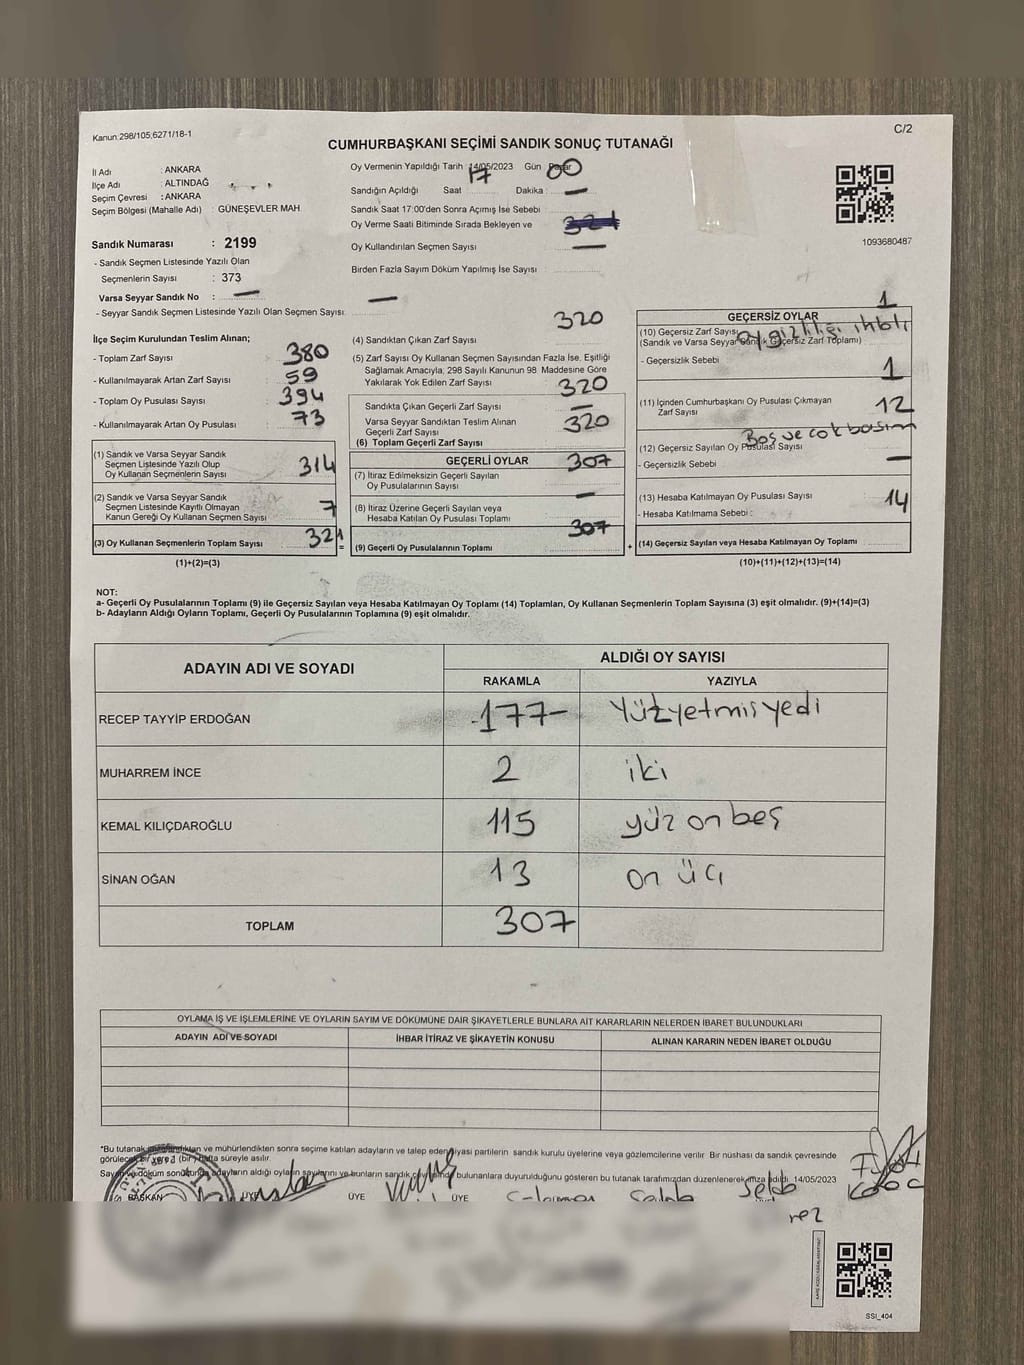 Kanun:298/105,6271/18-1
C/2
CUMHURBAŞKANI SEÇİMİ SANDIK SONUÇ TUTANAĞI
İl Adı : ANKARA
İlçe Adı : ALTINDAĞ
Seçim Çevresi : ANKARA
Seçim Bölgesi (Mahalle Adı) : GÜNEŞEVLER MAH.
Sandık Numarası : 2199
- Sandık Seçmen Listesinde Yazılı Olan
Seçmenlerin Sayısı : 373
Varsa Seyyar Sandık No : —
- Seyyar Sandık Seçmen Listesinde Yazılı Olan Seçmen Sayısı: —
Oy Vermenin Yapıldığı Tarih : 14/05/2023 Gün : Pazar
Sandığın Açıldığı Saat : 17 Dakika : 00
Sandık Saat 17:00'den Sonra Açımış İse Sebebi : —
Oy Verme Saati Bitiminde Sırada Bekleyen ve
Oy Kullandırılan Seçmen Sayısı : 321
Birden Fazla Sayım Döküm Yapılmış İse Sayısı : —
1093680487
İlçe Seçim Kurulundan Teslim Alınan;
- Toplam Zarf Sayısı : 380
- Kullanılmayarak Artan Zarf Sayısı : 59
- Toplam Oy Pusulası Sayısı : 394
- Kullanılmayarak Artan Oy Pusulası : 73
(1) Sandık ve Varsa Seyyar Sandık
Seçmen Listesinde Yazılı Olup
Oy Kullanan Seçmenlerin Sayısı : 314
(2) Sandık ve Varsa Seyyar Sandık
Seçmen Listesinde Kayıtlı Olmayan
Kanun Gereği Oy Kullanan Seçmen Sayısı : 7
(3) Oy Kullanan Seçmenlerin Toplam Sayısı : 321
(1)+(2)=(3)
(4) Sandıktan Çıkan Zarf Sayısı : 320
(5) Zarf Sayısı Oy Kullanan Seçmen Sayısından Fazla İse, Eşitliği
Sağlamak Amacıyla; 298 Sayılı Kanunun 98 Maddesine Göre
Yakılarak Yok Edilen Zarf Sayısı :
Sandıkta Çıkan Geçerli Zarf Sayısı : 320
Varsa Seyyar Sandıktan Teslim Alınan
Geçerli Zarf Sayısı : —
(6) Toplam Geçerli Zarf Sayısı : 320
GEÇERLİ OYLAR
(7) İtiraz Edilmeksizin Geçerli Sayılan
Oy Pusulalarının Sayısı : 307
(8) İtiraz Üzerine Geçerli Sayılan veya
Hesaba Katılan Oy Pusulası Toplamı : —
= (9) Geçerli Oy Pusulalarının Toplamı : 307
GEÇERSİZ OYLAR
(10) Geçersiz Zarf Sayısı 1
(Sandık ve Varsa Seyyar Sandık Geçersiz Zarf Toplamı)
- Geçersizlik Sebebi oy gizliliği ihlali
(11) İçinden Cumhurbaşkanı Oy Pusulası Çıkmayan
Zarf Sayısı 1
(12) Geçersiz Sayılan Oy Pusulası Sayısı 12
- Geçersizlik Sebebi : Boş ve çok basım
(13) Hesaba Katılmayan Oy Pusulası Sayısı —
- Hesaba Katılmama Sebebi :
+ (14) Geçersiz Sayılan veya Hesaba Katılmayan Oy Toplamı 14
(10)+(11)+(12)+(13)=(14)
NOT:
a- Geçerli Oy Pusulalarının Toplamı (9) ile Geçersiz Sayılan veya Hesaba Katılmayan Oy Toplamı (14) Toplamları, Oy Kullanan Seçmenlerin Toplam Sayısına (3) eşit olmalıdır. (9)+(14)=(3)
b- Adayların Aldığı Oyların Toplamı, Geçerli Oy Pusulalarının Toplamına (9) eşit olmalıdır.
ADAYIN ADI VE SOYADI
ALDIĞI OY SAYISI
RAKAMLA YAZIYLA
RECEP TAYYİP ERDOĞAN -177- Yüzyetmişyedi
MUHARREM İNCE 2 iki
KEMAL KILIÇDAROĞLU 115 yüz on beş
SİNAN OĞAN 13 on üç
TOPLAM 307
OYLAMA İŞ VE İŞLEMLERİNE VE OYLARIN SAYIM VE DÖKÜMÜNE DAİR ŞİKAYETLERLE BUNLARA AİT KARARLARIN NELERDEN İBARET BULUNDUKLARI
ADAYIN ADI VE SOYADI İHBAR İTİRAZ VE ŞİKAYETİN KONUSU ALINAN KARARIN NEDEN İBARET OLDUĞU
*Bu tutanak ve mühürlendikten sonra seçime katılan adayların ve talep eden siyasi partilerin sandık kurulu üyelerine veya gözlemcilerine verilir Bir nüshası da sandık çevresinde
görülecek bir yere (bir) hafta süreyle asılır.
Sayım ve döküm sonucunda adayların aldığı oyların sayılarını ve bunların sandık çevresinde bulunanlara duyurulduğunu gösteren bu tutanak tarafımızdan düzenlenerek imza edildi. 14/05/2023
BAŞKAN ÜYE ÜYE ÜYE
SSİ_404